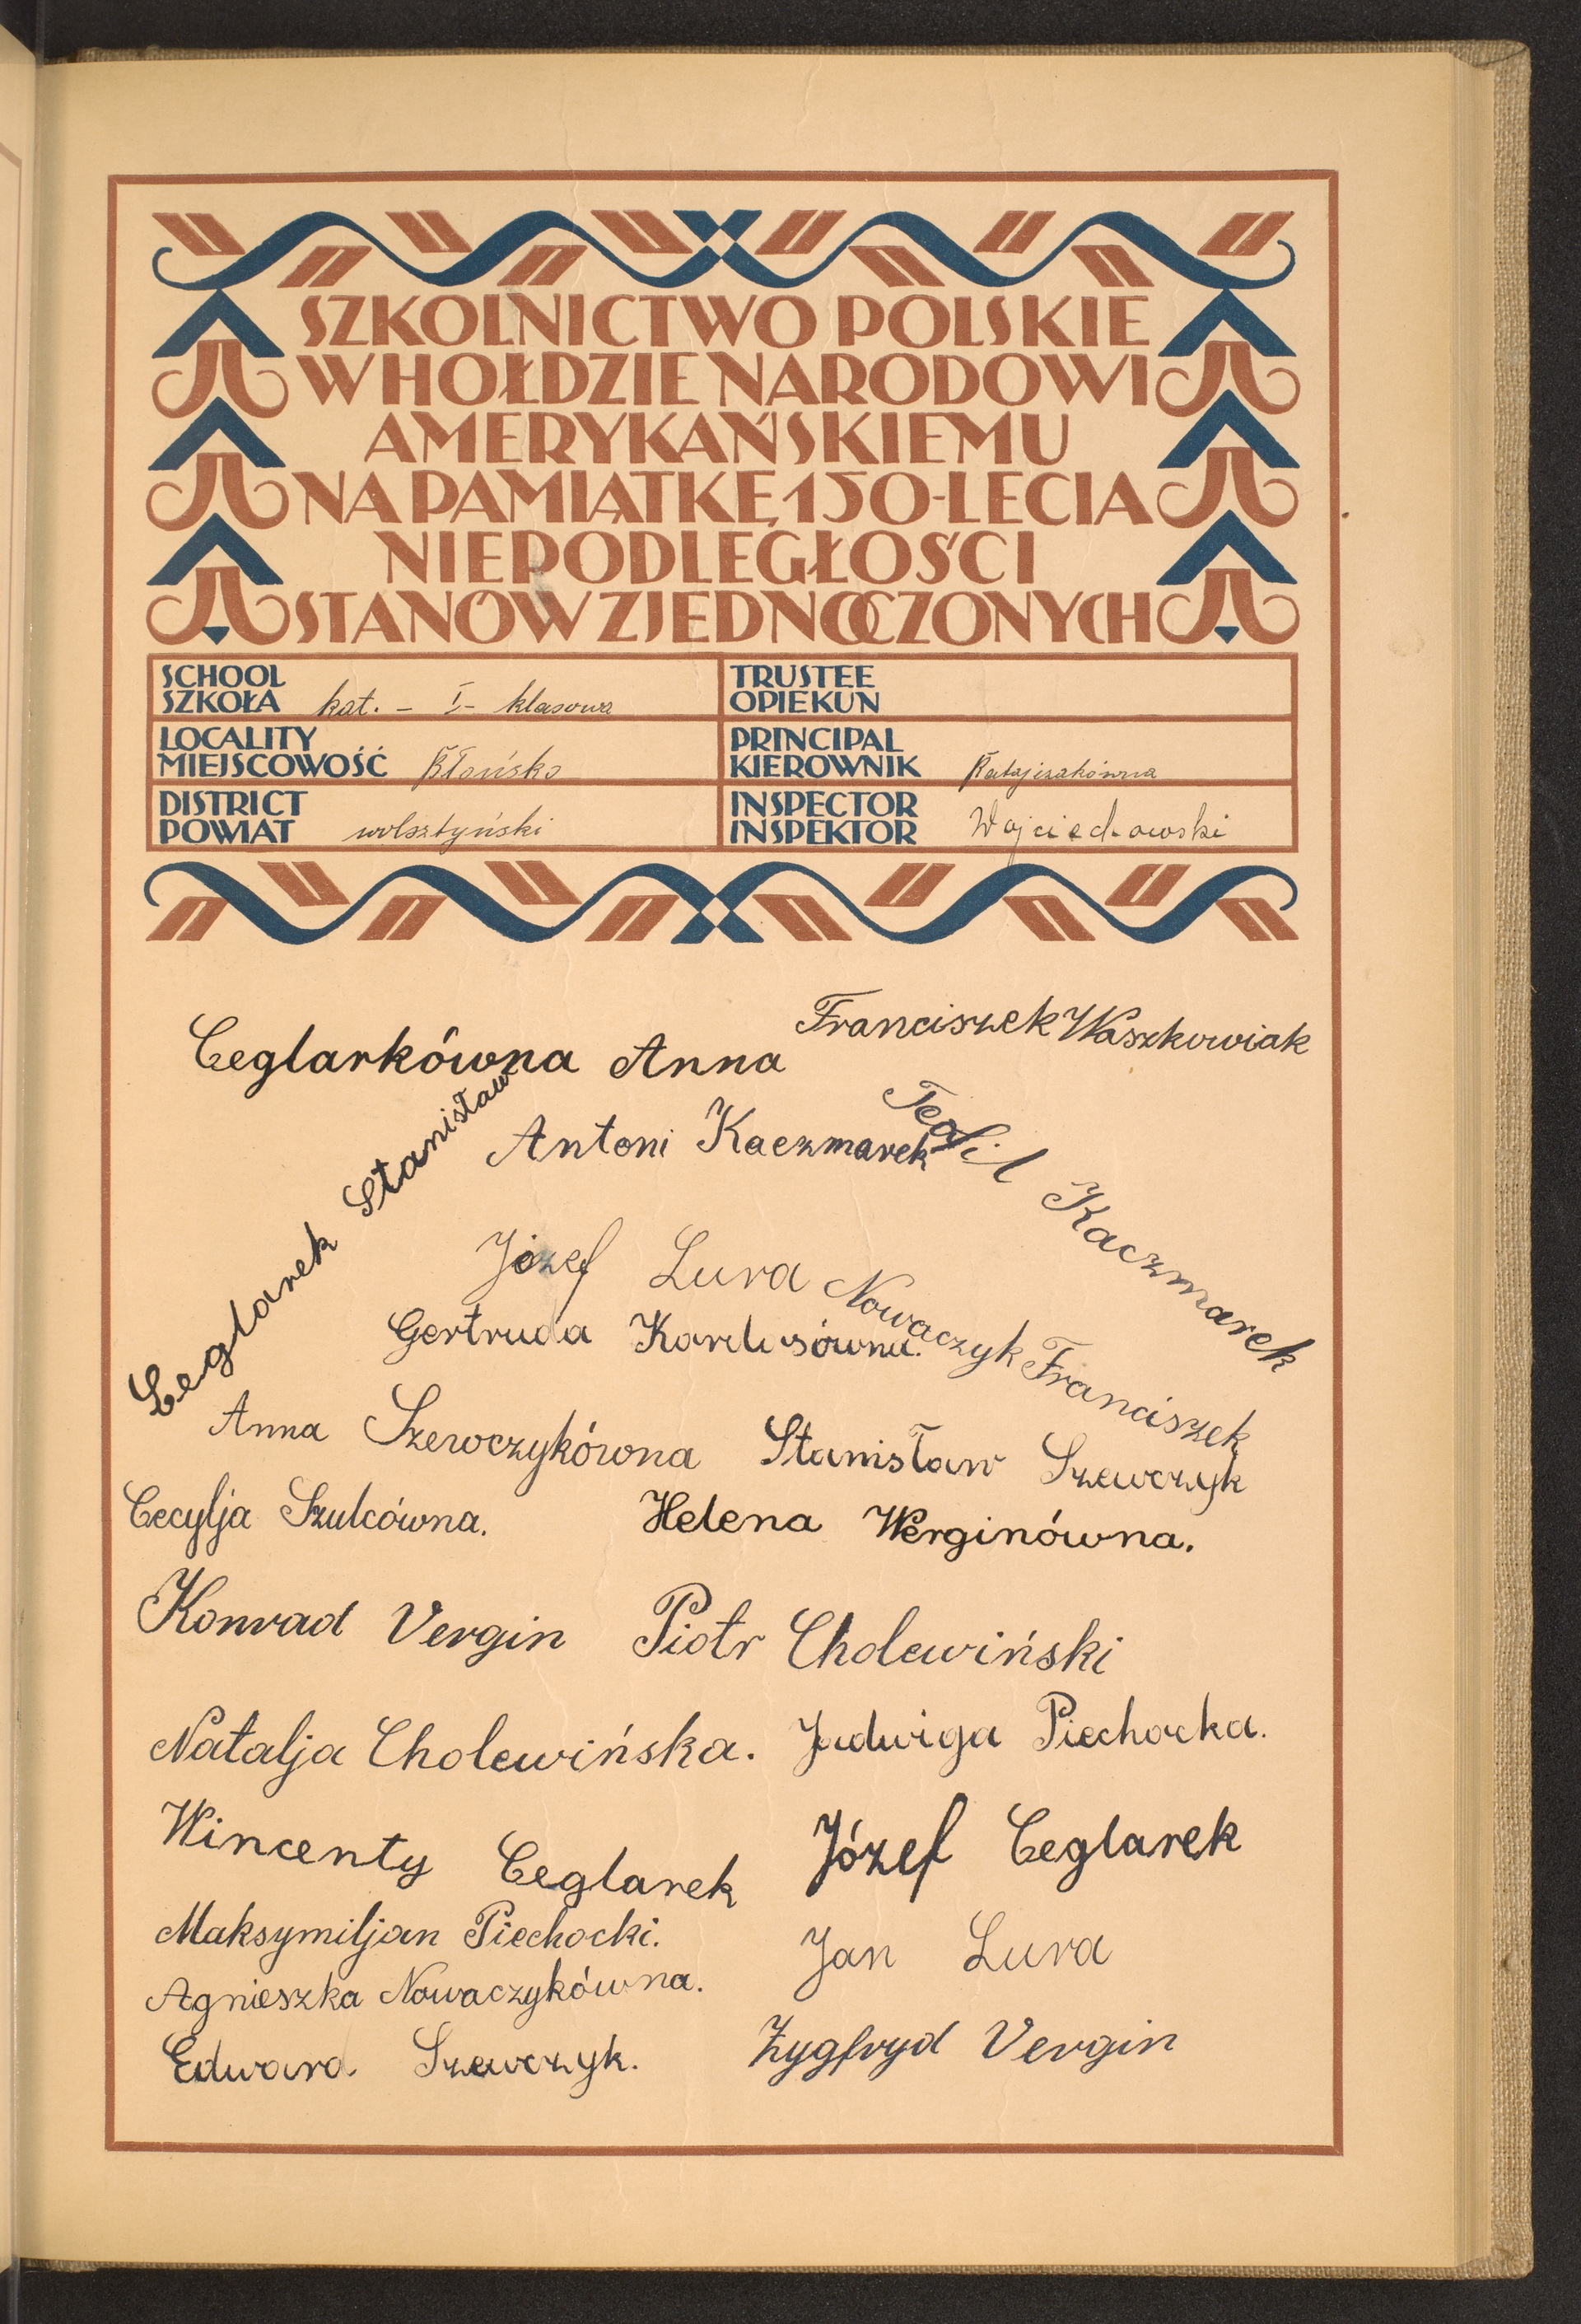 SZKOLNICTWO POLSKIE
W HOŁDZIE NARODOWI
AMERYKAŃSKIEMU
NA PAMIĄTKĘ 150-LECIA
NIEPODLEGŁOŚCI
STANÓW ZJEDNOCZONYCH
SCHOOL
SZKOŁA kat. - I - klasowa
TRUSTEE
OPIEKUN
LOCALITY
MIEJSCOWOŚĆ Błońsko
PRINCIPAL
KIEROWNIK Ratajczakówna
DISTRICT
POWIAT wolsztyński
INSPECTOR
INSPEKTOR Wojciechowski
Ceglarkówna Anna
Franciszek Waszkowiak
Ceglarek Stanisław
Antoni Kaczmarek
Teofil Kaczmarek
Józef Lura
Nowaczyk Franciszek
Gertruda
Anna Szewczykówna
Stanisław Szewczyk
Cecylja Szulcówna.
Helena Werginówna.
Konrad Vergin
Piotr Cholewiński
Natalja Cholewińska.
Jadwiga Piechocka.
Wincenty Ceglarek
Józef Ceglarek
Maksymiljan Piechocki.
Jan Lura
Agnieszka Nowaczykówna.
Edward Szewczyk.
Zygfryd Vergin